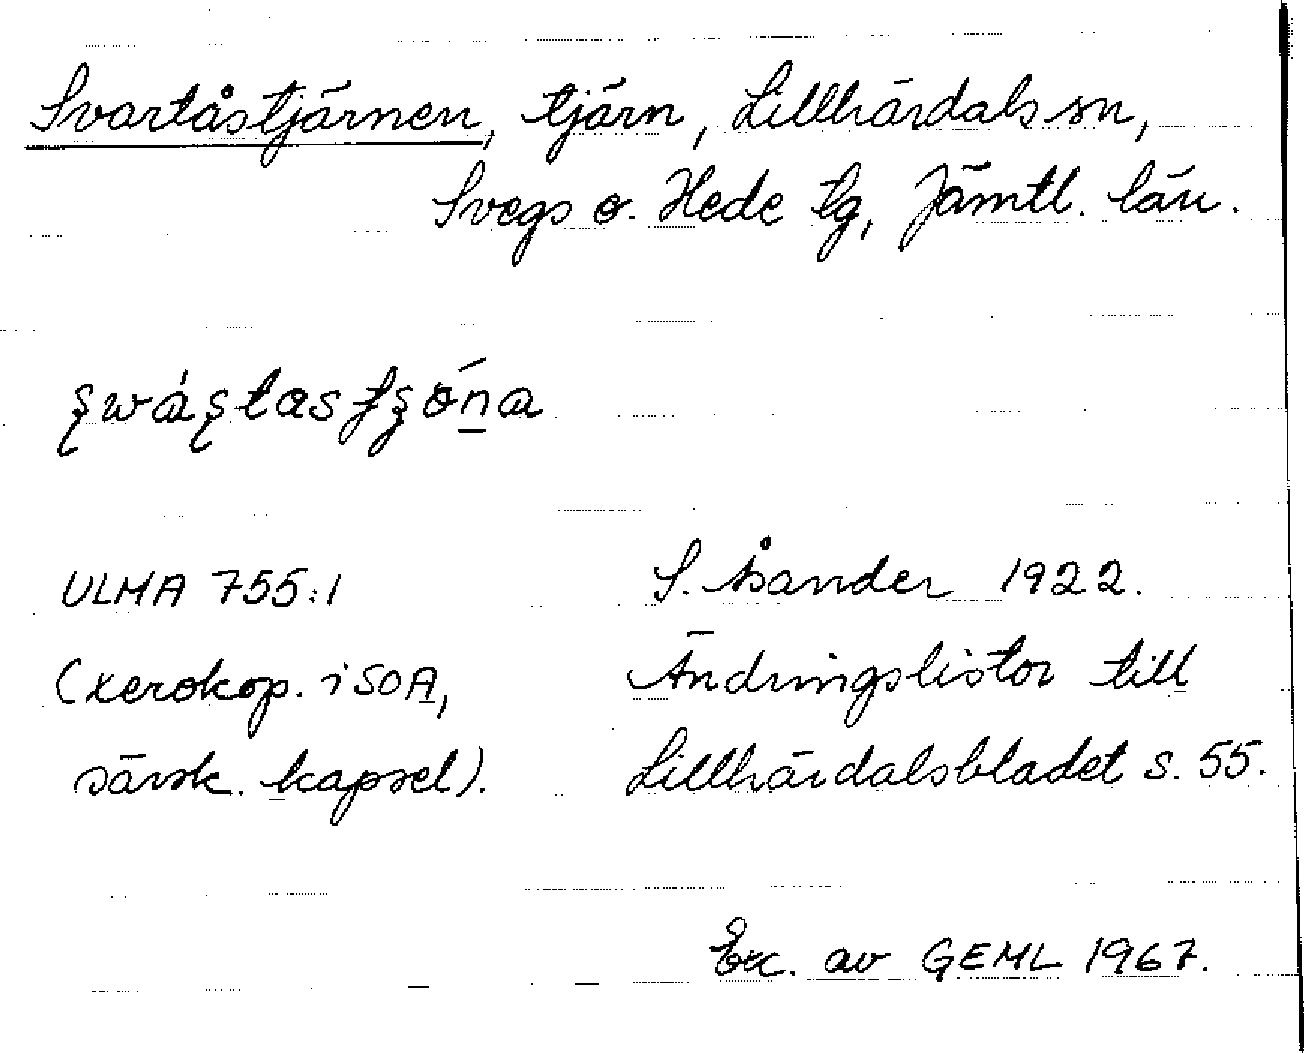 Svartåstjärnen, tjärn, Lillhärdals sn,
Svegs o. Hede tg, Jämtl. län.
ULMA 755:1
S. Åsander 1922.
(xerokop. i SOA,
Ändringslistor till
särsk. kapsel).
Lillhärdalsbladet s. 55.
Exc. av GEML 1967.